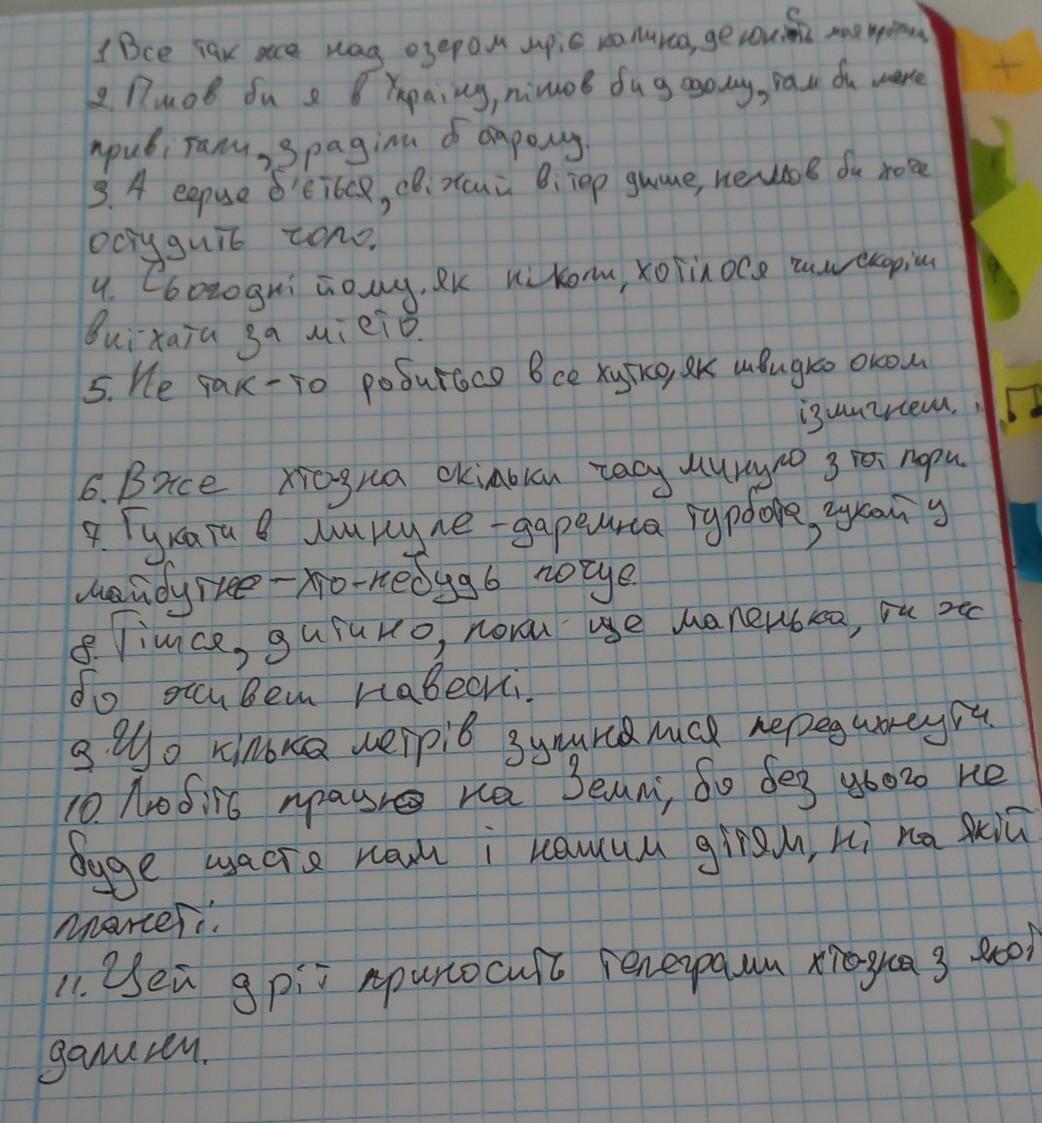 1 Все так же над озером мріє калина, де юність моя
2. Пішов би я в Україну, пішов би додому, там би мене
привітали, зраділи б старому.
3. А серце б'ється, свіжий вітер дише, немов би хоче
остудить чоло.
4. Сьогодні йому, як ніколи, хотілося чимскоріш
виїхати за місто.
5. Не так-то робиться все хутко, як швидко оком
ізмигнеш.
6. Вже хто-зна скільки часу минуло з тої пори.
7. Гукати в минуле - даремна турбота, гукай у
майбутнє - хто-небудь почує
8. Тішся, дитино, поки ще маленька, ти ж
бо живеш навесні.
9. Що кілька метрів зупинялися передихнути.
10. Любіть працю на Землі, бо без цього не
буде щастя нам і нашим дітям, ні на якій
планеті.
11. Цей дріт приносить телеграми хто-зна з якої
далини.